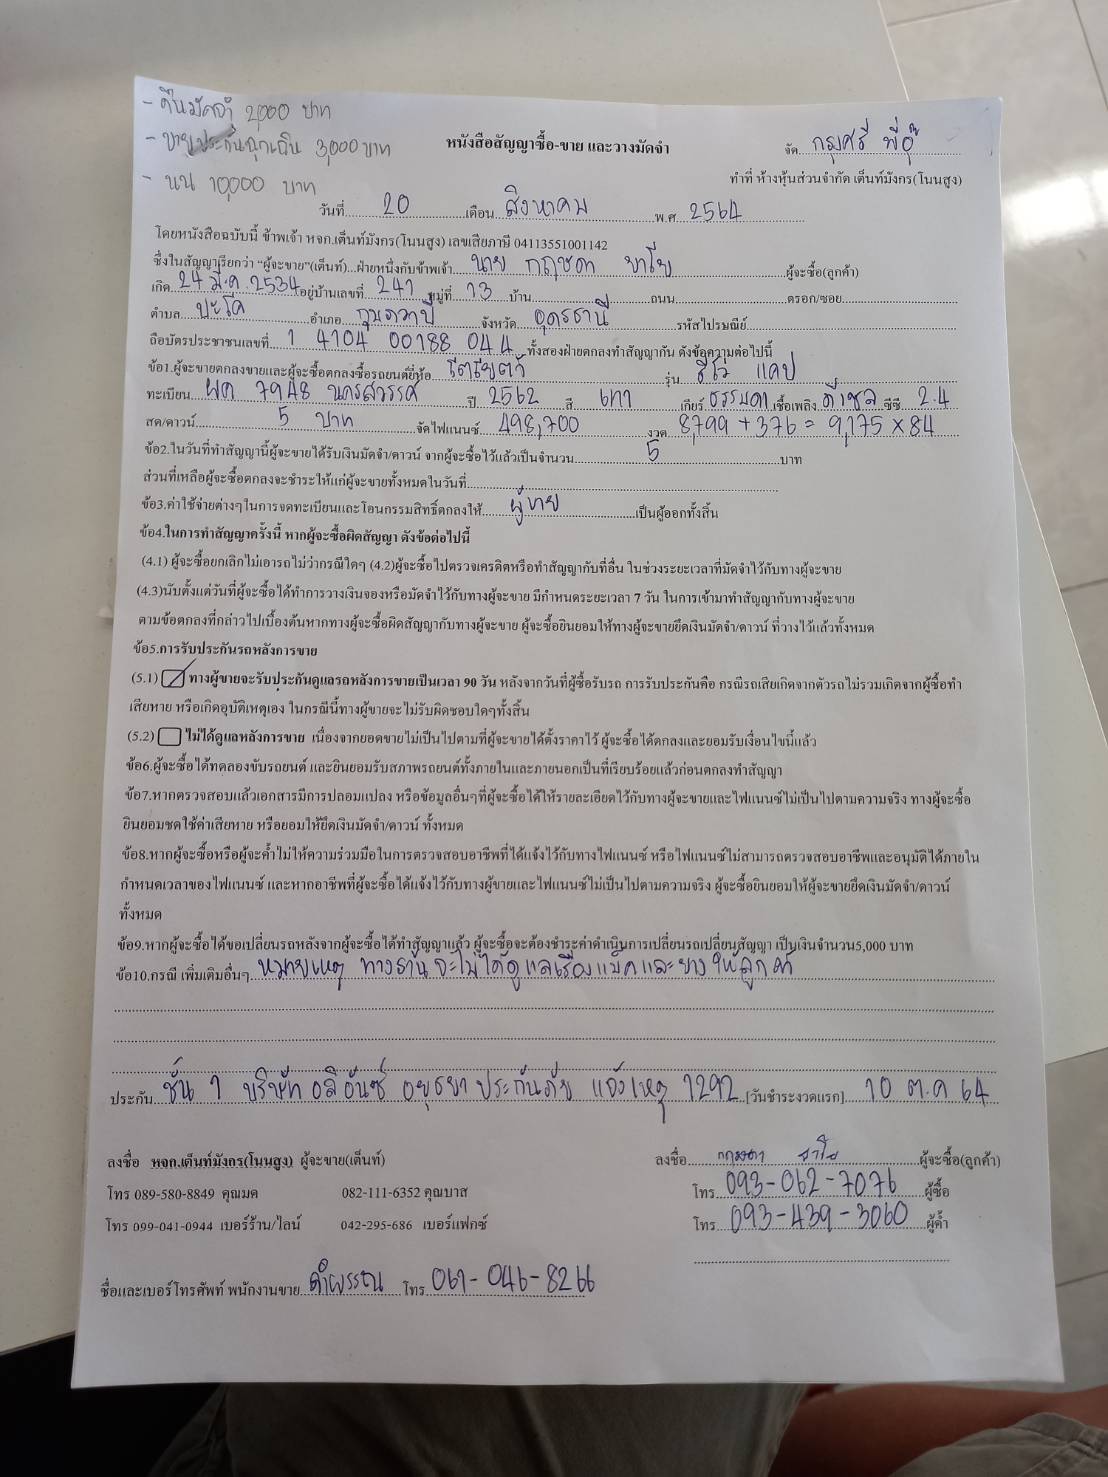 - คืนมัดจำ 2,000 บาท
- ขายประกันฉุกเฉิน 3,000 บาท
- นน 10,000 บาท
หนังสือสัญญาซื้อ-ขาย และวางมัดจำ
จัด กรุงศรี พี่อุ๊
ทำที่ ห้างหุ้นส่วนจำกัด เต็นท์มังกร(โนนสูง)
วันที่ 20 เดือน สิงหาคม พ.ศ 2564
โดยหนังสือฉบับนี้ ข้าพเจ้า หจก.เต็นท์มังกร(โนนสูง) เลขเสียภาษี 04113551001142
ซึ่งในสัญญาเรียกว่า "ผู้จะขาย"(เต็นท์)...ฝ่ายหนึ่งกับข้าพเจ้า นาย กฤษดา ผู้จะซื้อ(ลูกค้า)
เกิด 24 มี.ค. 2534 อยู่บ้านเลขที่ 241 หมู่ที่ 13 บ้าน ถนน ตรอก/ซอย
ตำบล ปะโค อำเภอ กุมภวาปี จังหวัด อุดรธานี รหัสไปรษณีย์
ถือบัตรประชาชนเลขที่ 1 4104 00188 04 4 ทั้งสองฝ่ายตกลงทำสัญญากัน ดังข้อความต่อไปนี้
ข้อ1.ผู้จะขายตกลงขายและผู้จะซื้อตกลงซื้อรถยนต์ยี่ห้อ โตโยต้า รุ่น รีโว่ แคป
ทะเบียน ผค 7948 นครสวรรค์ ปี 2562 สี เทา เกียร์ ธรรมดา เชื้อเพลิง ดีเซล ซีซี 2.4
สด/ดาวน์ 5 บาท จัดไฟแนนซ์ 498,700 งวด 8,799 + 376 = 9,175 x 84
ข้อ2.ในวันที่ทำสัญญานี้ผู้จะขายได้รับเงินมัดจำ/ดาวน์ จากผู้จะซื้อไว้แล้วเป็นจำนวน 5 บาท
ส่วนที่เหลือผู้จะซื้อตกลงจะชำระให้แก่ผู้จะขายทั้งหมดในวันที่
ข้อ3.ค่าใช้จ่ายต่างๆในการจดทะเบียนและโอนกรรมสิทธิ์ตกลงให้ ผู้ขาย เป็นผู้ออกทั้งสิ้น
ข้อ4.ในการทำสัญญาครั้งนี้ หากผู้จะซื้อผิดสัญญา ดังข้อต่อไปนี้
(4.1) ผู้จะซื้อยกเลิกไม่เอารถไม่ว่ากรณีใดๆ (4.2)ผู้จะซื้อไปตรวจเครดิตหรือทำสัญญากับที่อื่น ในช่วงระยะเวลาที่มัดจำไว้กับทางผู้จะขาย
(4.3)นับตั้งแต่วันที่ผู้จะซื้อได้ทำการวางเงินจองหรือมัดจำไว้กับทางผู้จะขาย มีกำหนดระยะเวลา 7 วัน ในการเข้ามาทำสัญญากับทางผู้จะขาย
ตามข้อตกลงที่กล่าวไปเบื้องต้นหากทางผู้จะซื้อผิดสัญญากับทางผู้จะขาย ผู้จะซื้อยินยอมให้ทางผู้จะขายยึดเงินมัดจำ/ดาวน์ ที่วางไว้แล้วทั้งหมด
ข้อ5.การรับประกันรถหลังการขาย
(5.1) ทางผู้ขายจะรับประกันดูแลรถหลังการขายเป็นเวลา 90 วัน หลังจากวันที่ผู้ซื้อรับรถ การรับประกันคือ กรณีรถเสียเกิดจากตัวรถไม่รวมเกิดจากผู้ซื้อทำ
เสียหาย หรือเกิดอุบัติเหตุเอง ในกรณีนี้ทางผู้ขายจะไม่รับผิดชอบใดๆทั้งสิ้น
(5.2) ไม่ได้ดูแลหลังการขาย เนื่องจากยอดขายไม่เป็นไปตามที่ผู้จะขายได้ตั้งราคาไว้ ผู้จะซื้อได้ตกลงและยอมรับเงื่อนไขนี้แล้ว
ข้อ6.ผู้จะซื้อได้ทดลองขับรถยนต์ และยินยอมรับสภาพรถยนต์ทั้งภายในและภายนอกเป็นที่เรียบร้อยแล้วก่อนตกลงทำสัญญา
ข้อ7.หากตรวจสอบแล้วเอกสารมีการปลอมแปลง หรือข้อมูลอื่นๆที่ผู้จะซื้อได้ให้รายละเอียดไว้กับทางผู้จะขายและไฟแนนซ์ไม่เป็นไปตามความจริง ทางผู้จะซื้อ
ยินยอมชดใช้ค่าเสียหาย หรือยอมให้ยึดเงินมัดจำ/ดาวน์ ทั้งหมด
ข้อ8.หากผู้จะซื้อหรือผู้จะค้ำไม่ให้ความร่วมมือในการตรวจสอบอาชีพที่ได้แจ้งไว้กับทางไฟแนนซ์ หรือไฟแนนซ์ไม่สามารถตรวจสอบอาชีพและอนุมัติได้ภายใน
กำหนดเวลาของไฟแนนซ์ และหากอาชีพที่ผู้จะซื้อได้แจ้งไว้กับทางผู้ขายและไฟแนนซ์ไม่เป็นไปตามความจริง ผู้จะซื้อยินยอมให้ผู้จะขายยึดเงินมัดจำ/ดาวน์
ทั้งหมด
ข้อ9.หากผู้จะซื้อได้ขอเปลี่ยนรถหลังจากผู้จะซื้อได้ทำสัญญาแล้ว ผู้จะซื้อจะต้องชำระค่าดำเนินการเปลี่ยนรถเปลี่ยนสัญญา เป็นเงินจำนวน5,000 บาท
ข้อ10.กรณี เพิ่มเติมอื่นๆ หมายเหตุ ทางร้านจะไม่ได้ดูแลเรื่องแม็คและยางให้ลูกค้า
ประกัน ชั้น 1 บริษัท อลิอันซ์ อยุธยา ประกันภัย แจ้งเหตุ 1292 [วันชำระงวดแรก] 10 ต.ค 64
ลงชื่อ หจก.เต็นท์มังกร(โนนสูง) ผู้จะขาย(เต็นท์) ลงชื่อ กฤษดา ผู้จะซื้อ(ลูกค้า)
โทร 089-580-8849 คุณมด 082-111-6352 คุณบาส โทร 093-062-7076 ผู้ซื้อ
โทร 099-041-0944 เบอร์ร้าน/ไลน์ 042-295-686 เบอร์แฟกซ์ โทร 093-439-3060 ผู้ค้ำ
ชื่อและเบอร์โทรศัพท์ พนักงานขาย คำพรรณ โทร 061-046-8266